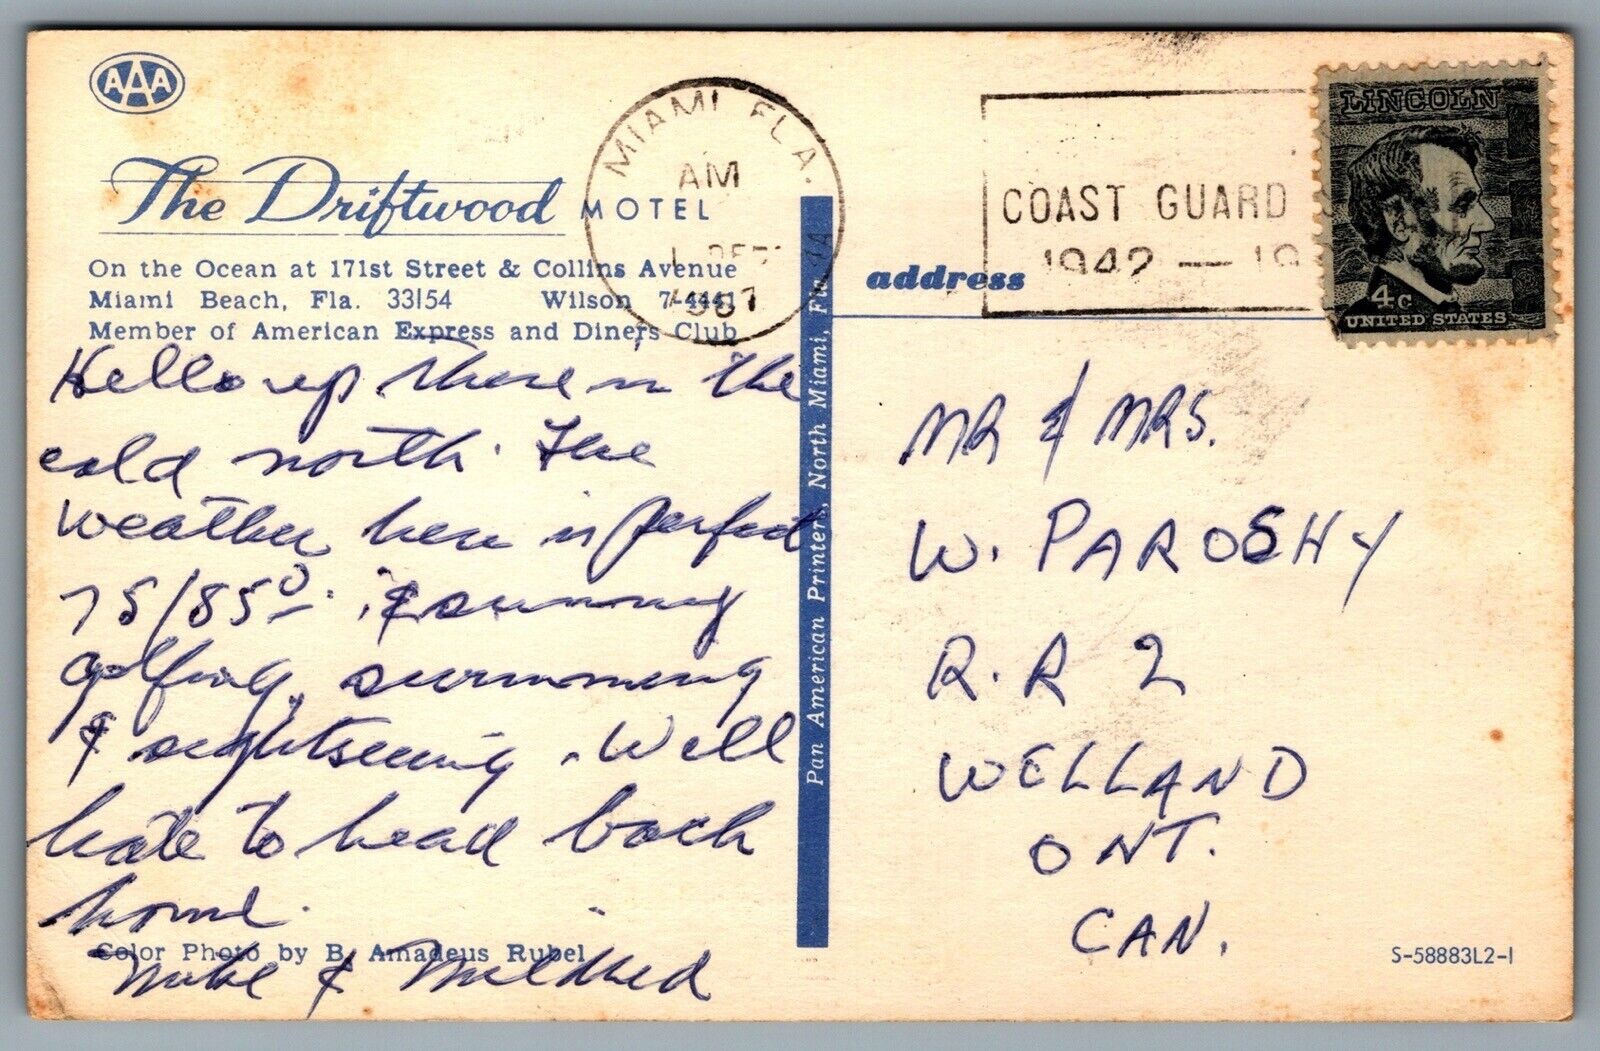 AAA
The Driftwood MOTEL
On the Ocean at 171st Street & Collins Avenue
Miami Beach, Fla. 33154 Wilson 7-4441
Member of American Express and Diners Club
Hello up there in the
cold north. The
weather here is perfect
75/85° 
golfing, swimming
& sightseeing. Will
hate to head back
home.
Color Photo by B. Amadeus Rubel
Mike & Mildred
MIAMI, FLA.
AM
DEC
1967
COAST GUARD
1942 — 19
LINCOLN
4c
UNITED STATES
Pan American Printers, North Miami, Fla.
address
MR & MRS.
W. PAROSHY
R.R 2
WELLAND
ONT.
CAN.
S-58883L2-1